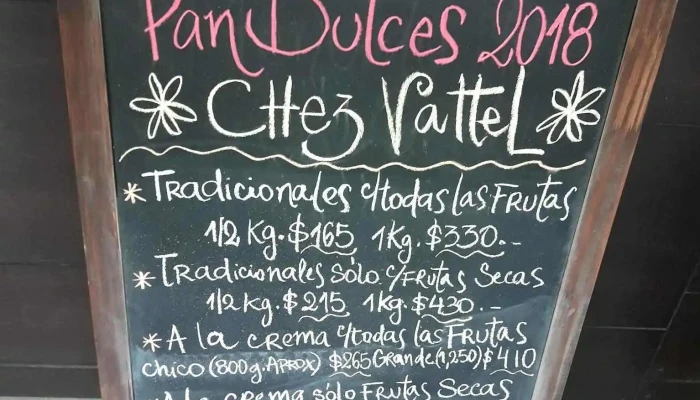 Pan Dulces 2018
CHez Vattel
* Tradicionales c/todas las Frutas
1/2 Kg. $165 1Kg. $330.-
* Tradicionales sólo c/Frutas Secas
1/2 Kg. $215 1Kg. $430.-
* A la crema c/todas las Frutas
chico (800g. Aprox) $265 Grande (1,250) $410
* A la crema sólo Frutas Secas